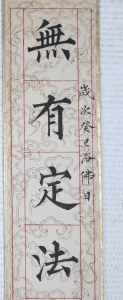 無有定法
歲次癸巳浴佛日